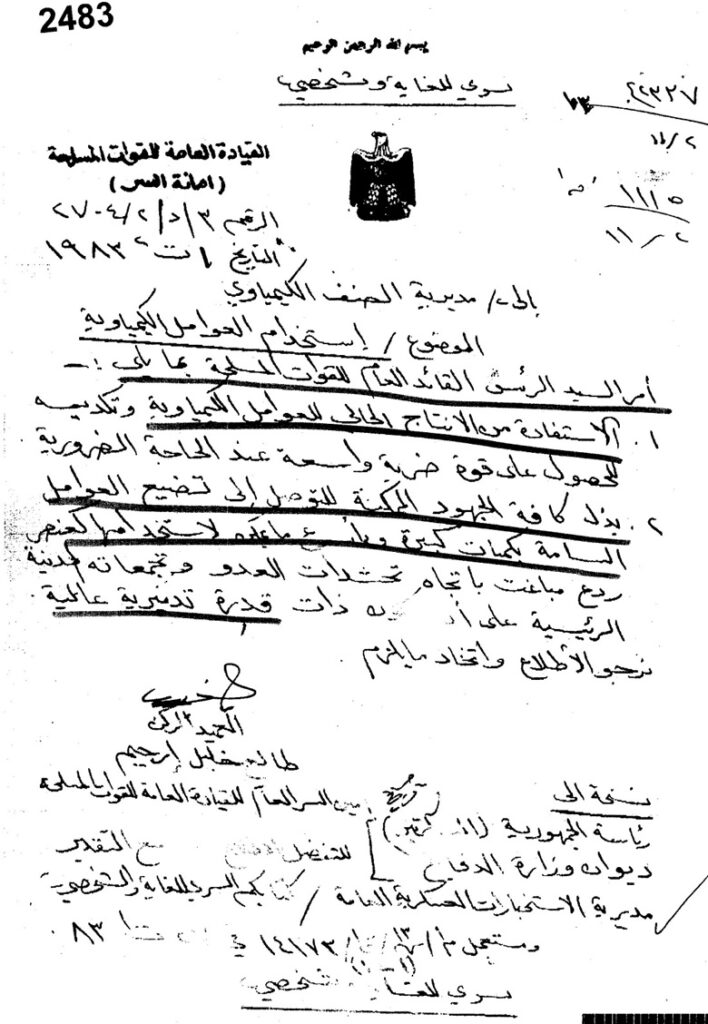 2483
بسم الله الرحمن الرحيم
سري للغاية وشخصي
القيادة العامة للقوات المسلحة
(امانة السر)
الرقم ٣/د/٢/٢٧٠٤
التاريخ ت٢ ١٩٨٣
١١/٢
١١١٥
١١/٢
إلى / مديرية الصنف الكيمياوي
الموضوع / إستخدام العوامل الكيمياوية
أمر السيد الرئيس القائد العام للقوات المسلحة بما يلي :ـ
١. الاستفادة من الانتاج الحالي للعوامل الكيمياوية وتكديسه
للحصول على قوة ضربة واسعة عند الحاجة الضرورية
٢. بذل كافة الجهود الممكنة للتوصل إلى تصنيع العوامل
السامة بكميات كبيرة وبأسرع مايمكن لاستخدامها كعنصر
ردع مباغت باتجاه تحشدات العدو وتجمعاته
الرئيسية على أن ذات قدرة تدميرية عالية
نرجو الأطلاع واتخاذ مايلزم .
العميد الركن
طالع خليل إرحيم
أمين السر العام للقيادة العامة للقوات المسلحة
نسخة الى
رئاسة الجمهورية
ديوان وزارة الدفاع
للتفضل مع التقدير
مديرية الاستخبارات العسكرية العامة / كتابكم السري للغاية والشخصي
ومستعجل ١٤١٧٢ في ٨٣ .
سري للغاية شخصي